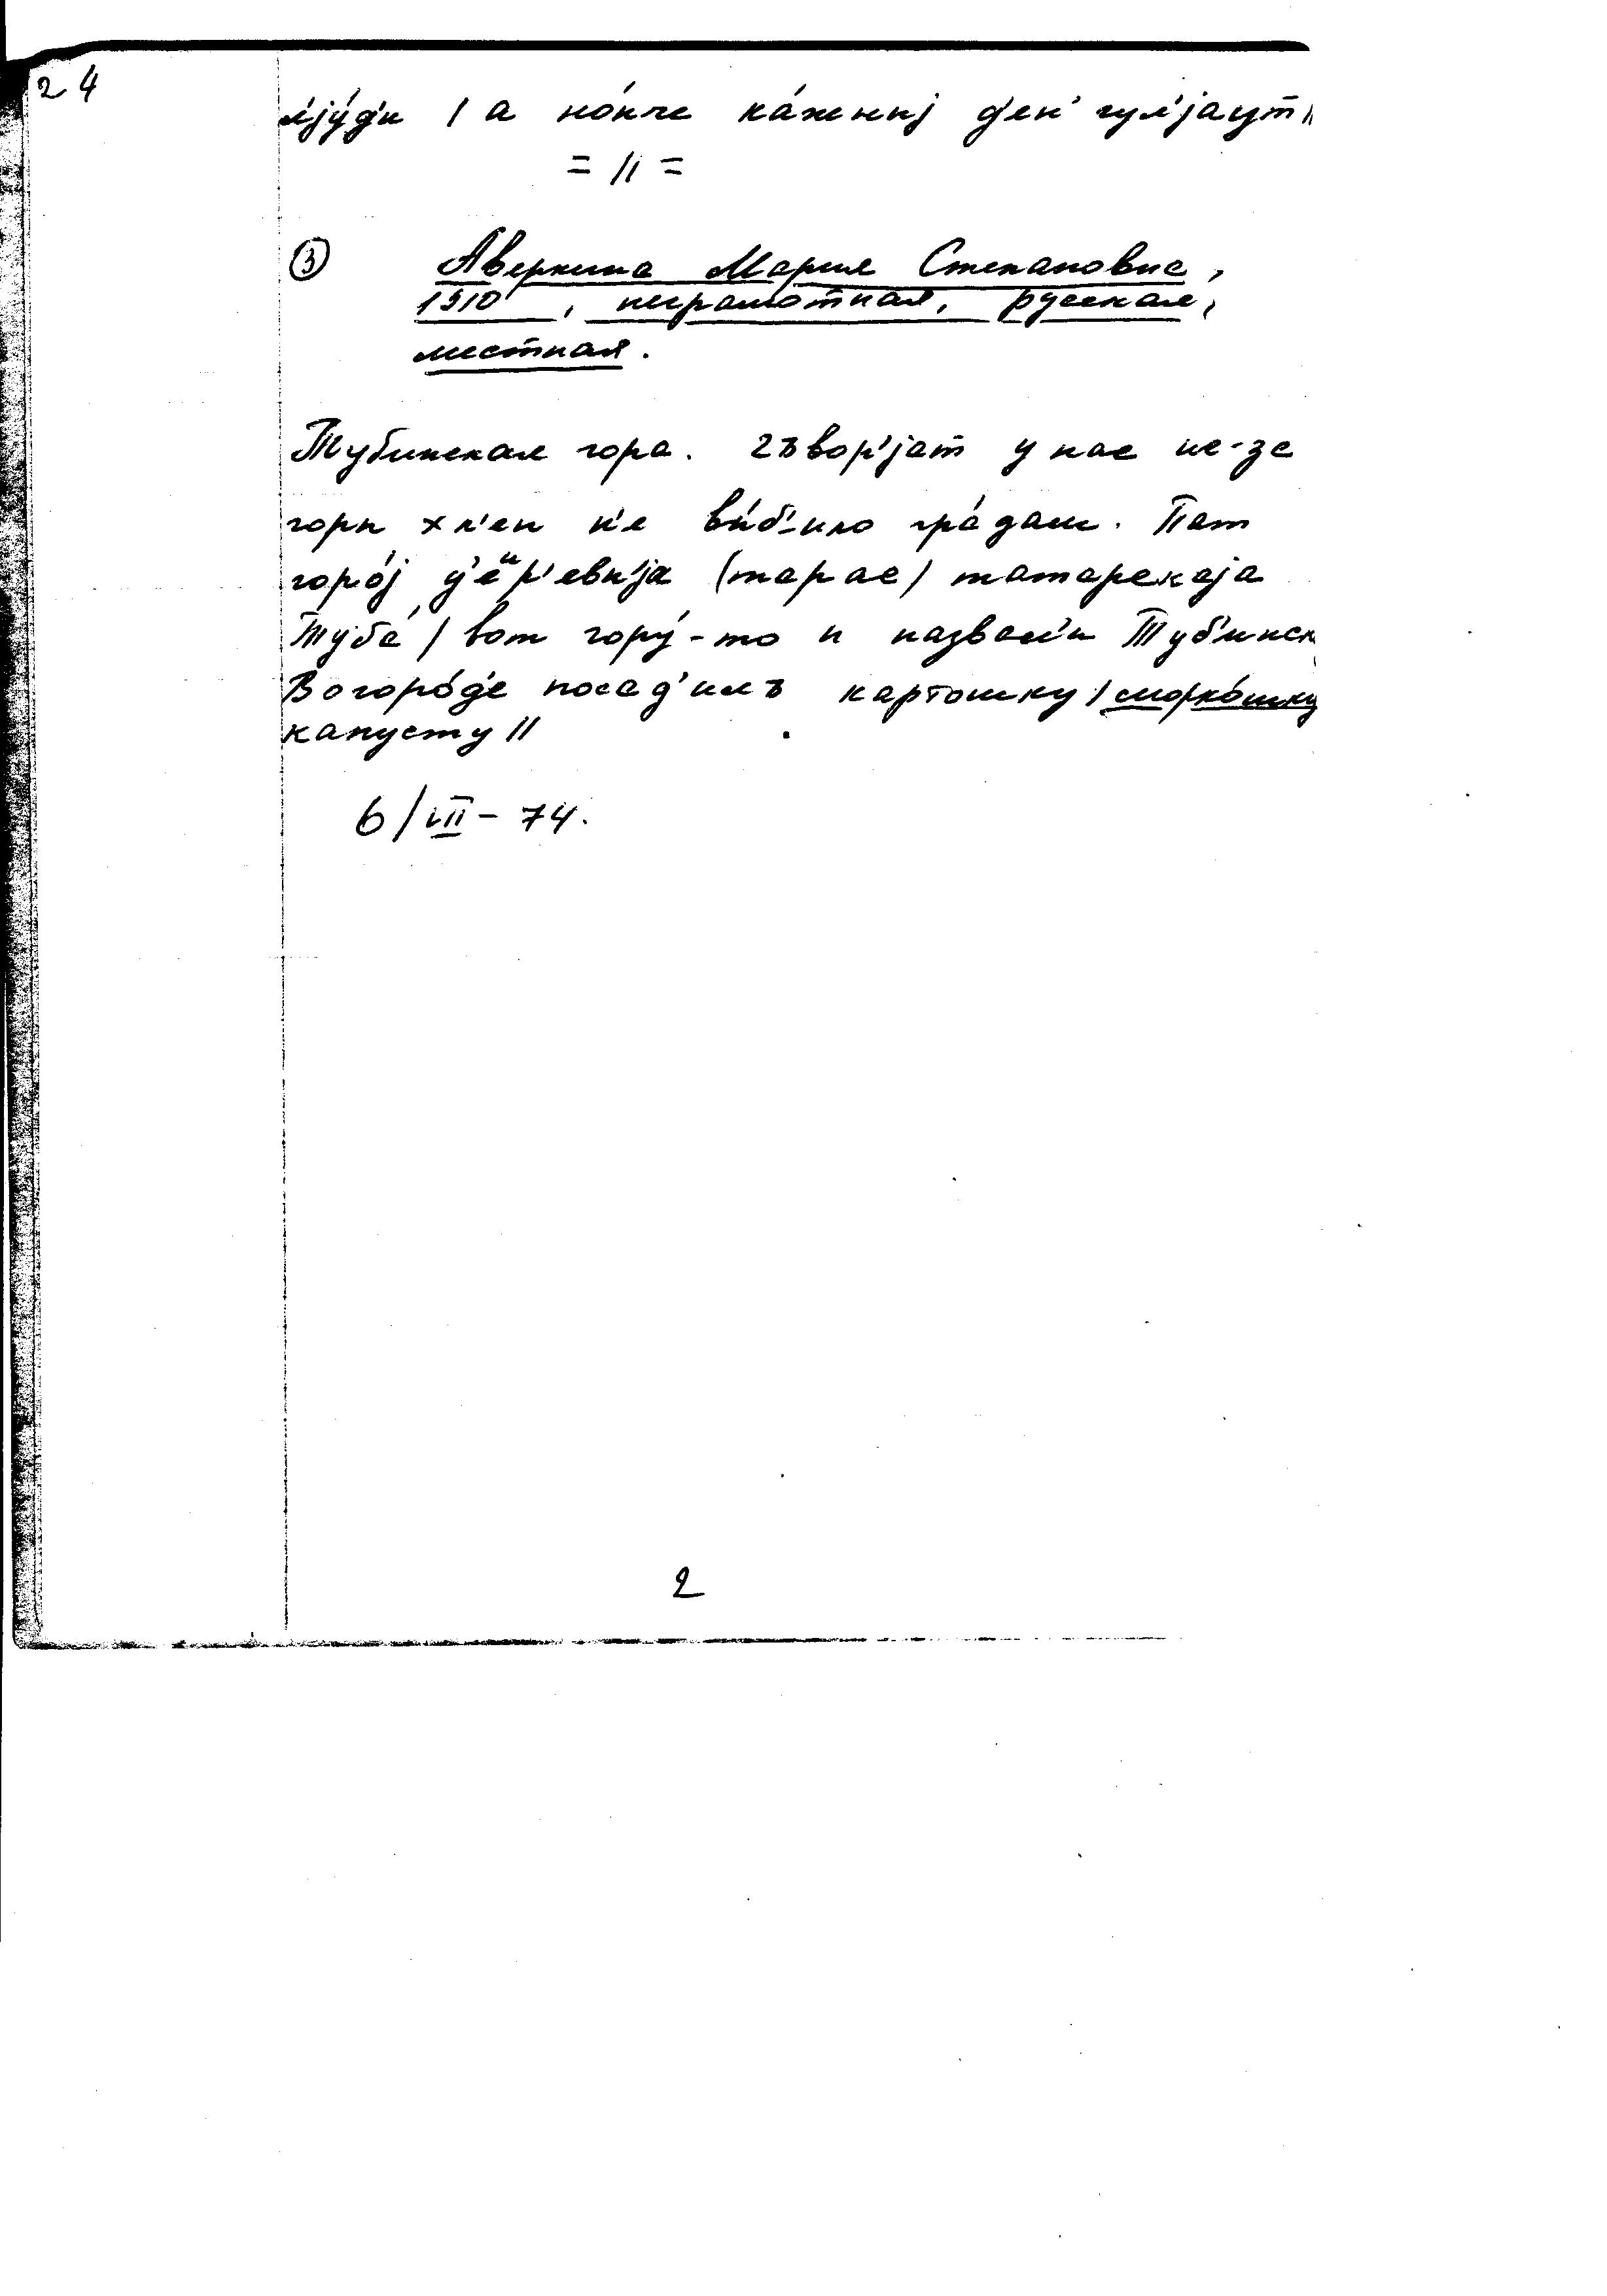 24
л'jу́д'и / а но́нче ка́женнij д'ен' гул'jаут //
= // =
③ Аверкина Мария Степановна,
1910, неграмотная, русская,
местная.
Тубинская гора. гъвор'jат у нас ис-за
горы хл'еп н'е ви́б'ило гра́дам. Пат
горо́j д'ер'евн'jа (тарас) татарскаjа
Туба́ / вот гору́-то и назвал'и Туб'инск
В огоро́д'е посад'илъ картошку / морко́шку
капусту //
6/VII - 74.
2